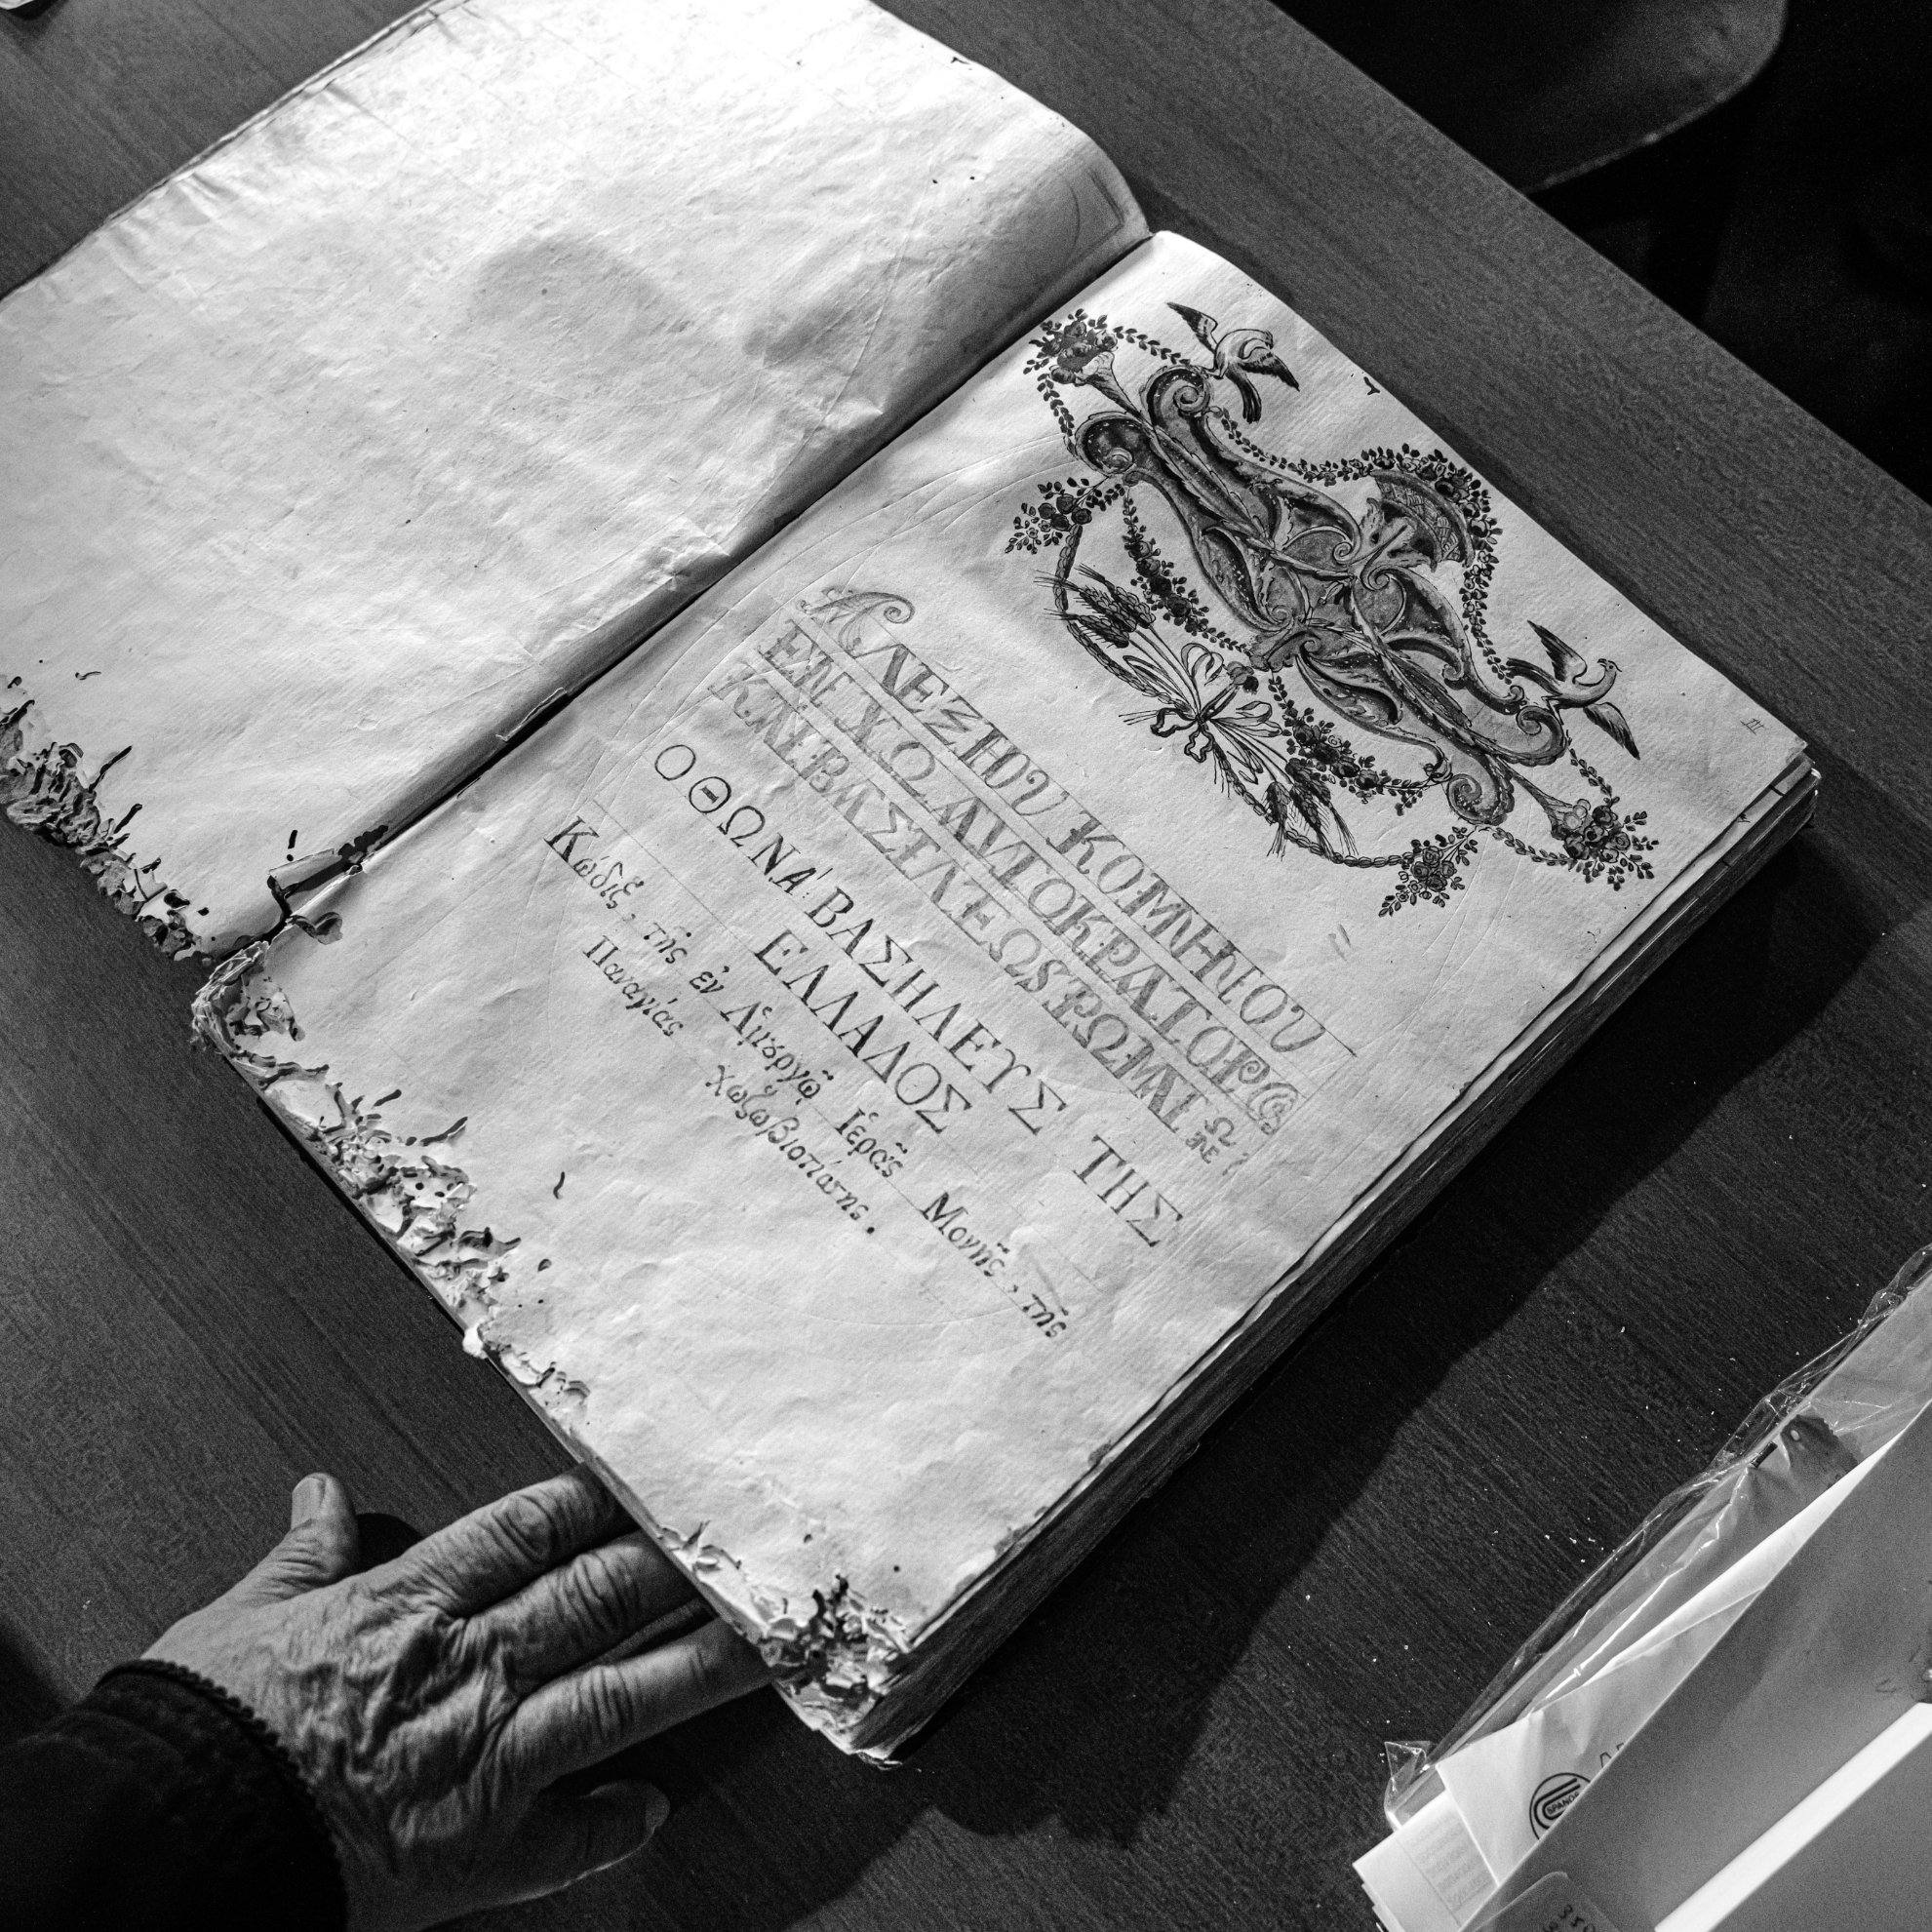 ΑΛΕΞΙΟΥ ΚΟΜΝΗΝΟΥ
ΕΝ ΧΩ ΑΥΤΟΚΡΑΤΟΡΟς
ΚΑΙ ΒΑΣΙΛΕΩΣ ΡΩΜΑΙΩ
ΟΘΩΝΑ! ΒΑΣΗΛΕΥΣ ΤΗΣ
ΕΛΛΑΔΟΣ
Κώδιξ, τῆς ἐν Λιμουργῷ Ἱερᾶς Μονῆς, τῆς
Παναγίας Χωζωβιοτίσης.